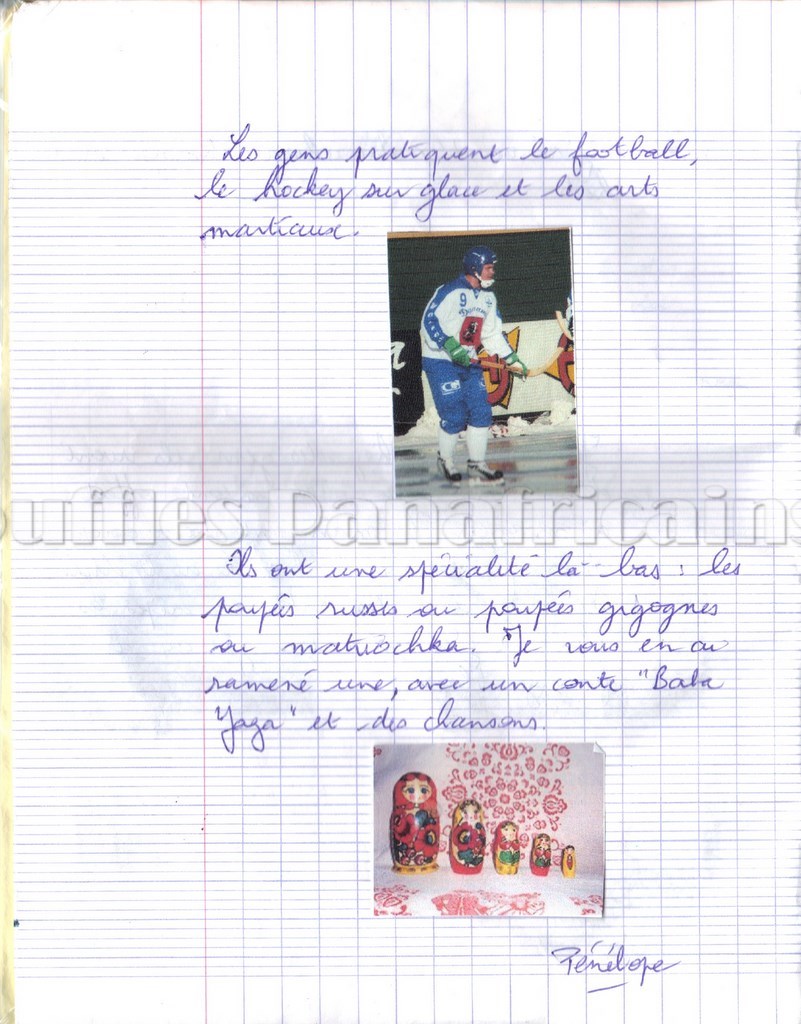 Les gens pratiquent le football,
le hockey sur glace et les arts
martiaux.
9
ouffles Panafricains
Ils ont une spécialité là-bas : les
poupées russes ou poupées gigognes
ou matriochka. Je vous en ai
ramené une, avec un conte "Baba
Yaga" et des chansons.
Pénélope